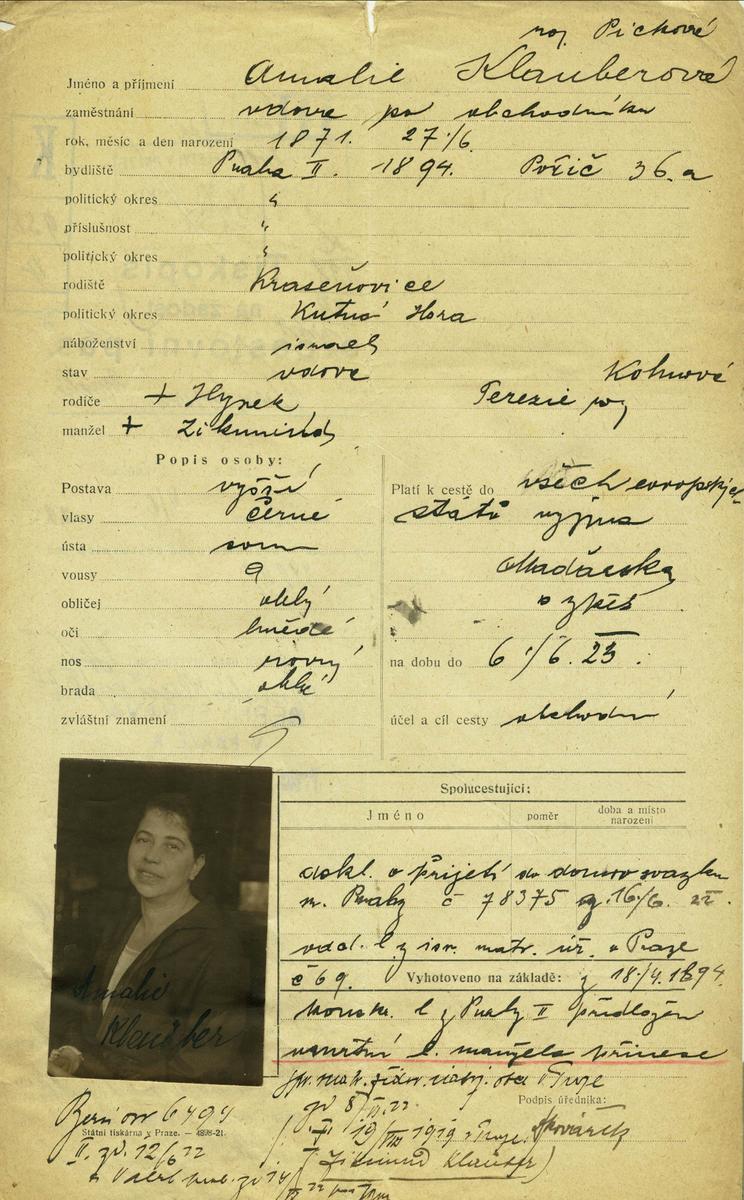 roz. Picková
Jméno a příjmení Amalie Klauberová
zaměstnání vdova po obchodníku
rok, měsíc a den narození 1871. 27./6.
bydliště Praha II. 1894. Pořič 36.a
politický okres "
příslušnost "
politický okres "
rodiště Kraseňovice
politický okres Kutná Hora
náboženství israel
stav vdova
rodiče + Hynek Terezie roz Kohnová
manžel + Zikmund
Popis osoby:
Postava vyšší
vlasy černé
ústa soum
vousy
obličej oblý
oči hnědé
nos rovný
brada oblá
zvláštní znamení
Platí k cestě do všech evropských
států vyjma
Maďarska
a zpět
na dobu do 6./6. 23.
účel a cíl cesty obchodní
Spolucestující:
Jméno poměr doba a místo narození
dokl. o přijetí do domov svazku
m. Prahy č 78375 z 16/6. 22.
odd. l. z isr. matr. úř. v Praze
č 69. z 18./4. 1894.
Vyhotoveno na základě:
konskr. l z Prahy II předložen
úmrtní l. manžela přinese
Amalie
Klauber
Státní tiskárna v Praze. — 4898-21.
Podpis úředníka:
Kovářík
II. zd. 12/6 22
19/ 1919
(Zikmund Klauber)